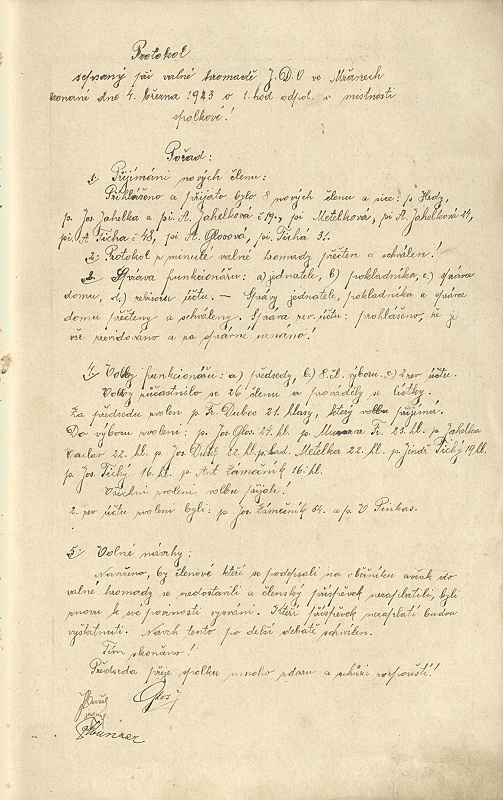 Protokol
sepsaný při valné hromadě J.D.O ve Mžanech
konané dne 4. března 1923 o 1. hod odpol. v místnosti
spolkové!
Pořad:
1. Přijímání nových členu:
Přihlášeno a přijato bylo 8 nových členu a sice: p. Hedy,
p. Jos. Jahelka a pí. A. Jahelková č 19., pí Metelková, pí A. Jahelková 24,
pí. A Tichá č 48, pí A. Glosová, pí. Tichá 31.
2. Protokol z minulé valné hromady přečten a schválen!
3. Správa funkcionářu: a) jednatele, b) pokladníka, c.) správce
domu, d.) revisoru účtu. — Správy jednatele, pokladníka a správce
domu přečteny a schváleny. Správa rev. účtu: prohlášeno, že je
vše revidováno a za správné uznáno!
4. Volby funkcionářu: a) předsedy, b) 8 čl. výboru. c) 2 rev účtu.
Volby súčastnilo se 26 členu a prováděly se lístky.
Za předsedu zvolen p. Fr. Dubec 21. hlasy, který volbu přijímá.
Do výboru zvoleni: p. Jos. Glos. 24. hl. p. Fr. 23. hl. p. Jahelka
Václav 22. hl. p. Jos. 22. hl. p. Lad. Metelka 22 hl. p. Jindř Tichý 19. hl.
p. Jos. Tichý 16. hl. p. Ant Zámečník 16. hl.
Všichni zvolení volbu přijali!
2. rev účtu zvoleni byli: p. Jos. Zámečník 64. a p. V Pinkas.
5. Volné návrhy:
Navrženo, by členové kteří se podepsali na sběrníku avšak do
valné hromady se nedostavili a členský příspěvek nezaplatili, byli
znovu k své povinosti vyzváni. Kteří příspěvek nezaplatí budou
vyškrtnuti. Návrh tento po delší debatě schválen.
Tím skončeno!
Předseda přeje spolku mnoho zdaru a schůzi rozpouští!
Glos J